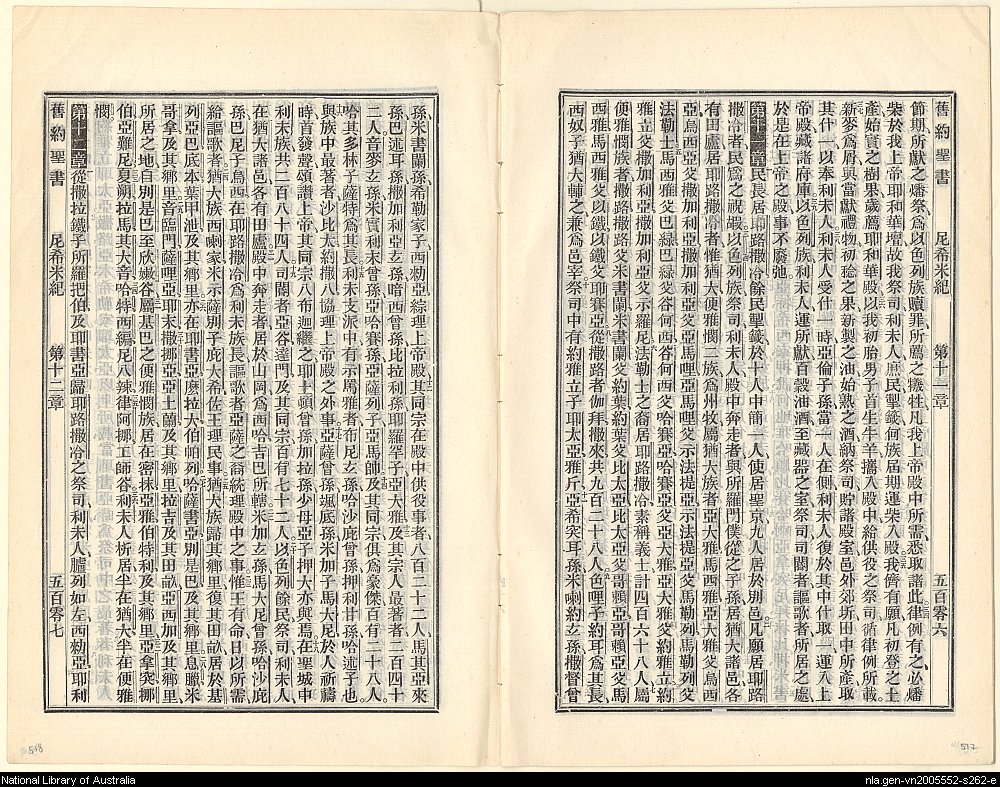 舊約聖書 尼希米紀 第十一章 五百零六
節期所獻之燔祭爲以色列族贖罪所薦之犧牲凡我上帝殿中所需悉取諸此律例有之必燔
柴於我上帝耶和華壇故我祭司利未人庶民掣籤何族屆期運柴入殿我儕有願凡初登之土
產始實之樹果歲薦耶和華殿以我初胎男子首生牛羊攜入殿中給供役之祭司循律例所載
新麥爲屑與當獻禮物初稔之果新製之油始熟之酒納祭司貯諸殿室邑外郊所田中所產取
其什一以奉利未人利未人受什一時亞倫子孫當一人在側利未人復於其中什取一運入上
帝殿藏諸府庫以色列族利未人運所獻百穀油酒至藏器之室祭司司閽者謳歌者所居之處
於是在上帝之殿事不廢弛
第十一章民長居耶路撒冷餘民掣籤於十人中簡一人使居聖京九人居於別邑凡願居耶路
撒冷者民爲之祝嘏以色列族祭司利未人殿中奔走者與所羅門僕從之子孫居猶大諸邑各
有田廬居耶路撒冷者惟猶大便雅憫二族爲州牧屬猶大族者亞大雅馬西雅亞大雅父烏西
亞烏西亞父撒加利亞撒加利亞父亞馬哩亞馬哩父示法提亞示法提亞父馬勒列馬勒列父
法勒士馬西雅父巴綠巴綠父谷何西谷何西父哈賽亞哈賽亞父亞大雅亞大雅父約雅立約
雅立父撒加利亞撒加利亞父示羅尼法勒士之裔居耶路撒冷素稱義士計四百六十八人屬
便雅憫族者撒路撒路父米書蘭米書蘭父約葉約葉父比太亞比太亞父哥賴亞哥賴亞父馬
西雅馬西雅父以鐵以鐵父耶賽亞從撒路者伽拜撒來共九百二十八人色哩子約耳爲其長
西奴子猶大輔之兼爲邑宰祭司中有約雅立子耶太亞雅斤亞希突耳孫米喇約玄孫撒督曾
孫米書蘭孫希勒家子西勑亞綜理上帝殿其同宗在殿中供役事者八百二十二人馬其亞來
孫巴述耳孫撒加利亞玄孫暗西曾孫比拉利孫耶羅罕子亞大雅及其宗人最著者二百四十
二人音麥玄孫米實利末曾孫亞哈賽孫亞薩列子亞馬帥及其同宗俱爲豪傑百有二十八人
哈其多林子薩特爲其長利未支派中有示馬雅者布尼玄孫哈沙庇曾孫押利甘孫哈述子也
與族中最著者沙比太約撒八協理上帝殿之外事亞薩曾孫颯底孫米加子馬大尼於人祈禱
時首發聲頌讚上帝其同宗八布迦纚之土頓曾孫加拉孫少母亞子押大亦與焉在聖城中
利未族共二百八十四人司閽者亞谷達門及其同宗百有七十二人以色列餘民祭司利未人
在猶大諸邑各有田廬殿中奔走者居於山岡爲西哈吉巴所轄米加玄孫馬大尼曾孫哈沙庇
孫巴尼子烏西在耶路撒冷爲利未族長謳歌者亞薩之裔統理殿中之事惟王有命日以所需
給謳歌者猶大族西喇家米示薩別子庇大希佐王理民事猶大族歸其鄉里復其田畝居於基
列亞巴底本葉甲泄及其鄉里亦在耶書亞麼拉大伯帕列哈薩書亞別是巴及其鄉里息臘米
哥拿及其鄉里音臨門薩哩亞耶末撒挪亞亞土蘭及其鄉里拉吉及其田畝亞西加及其鄉里
所居之地自別是巴至欣嫩谷屬基巴之便雅憫族居在密抹亞雅伯特利及其鄉里亞拿突挪
伯亞難尼夏朔拉馬其大音哈特西編尼八辣律阿挪工師谷利未人析居半在猶大半在便雅
憫
第十二章從撒拉鐵子所羅把伯及耶書亞歸耶路撒冷之祭司利未人臚列如左西勑亞耶利
舊約聖書 尼希米紀 第十二章 五百零七
518
517
National Library of Australia
nla.gen-vn2005552-s262-e